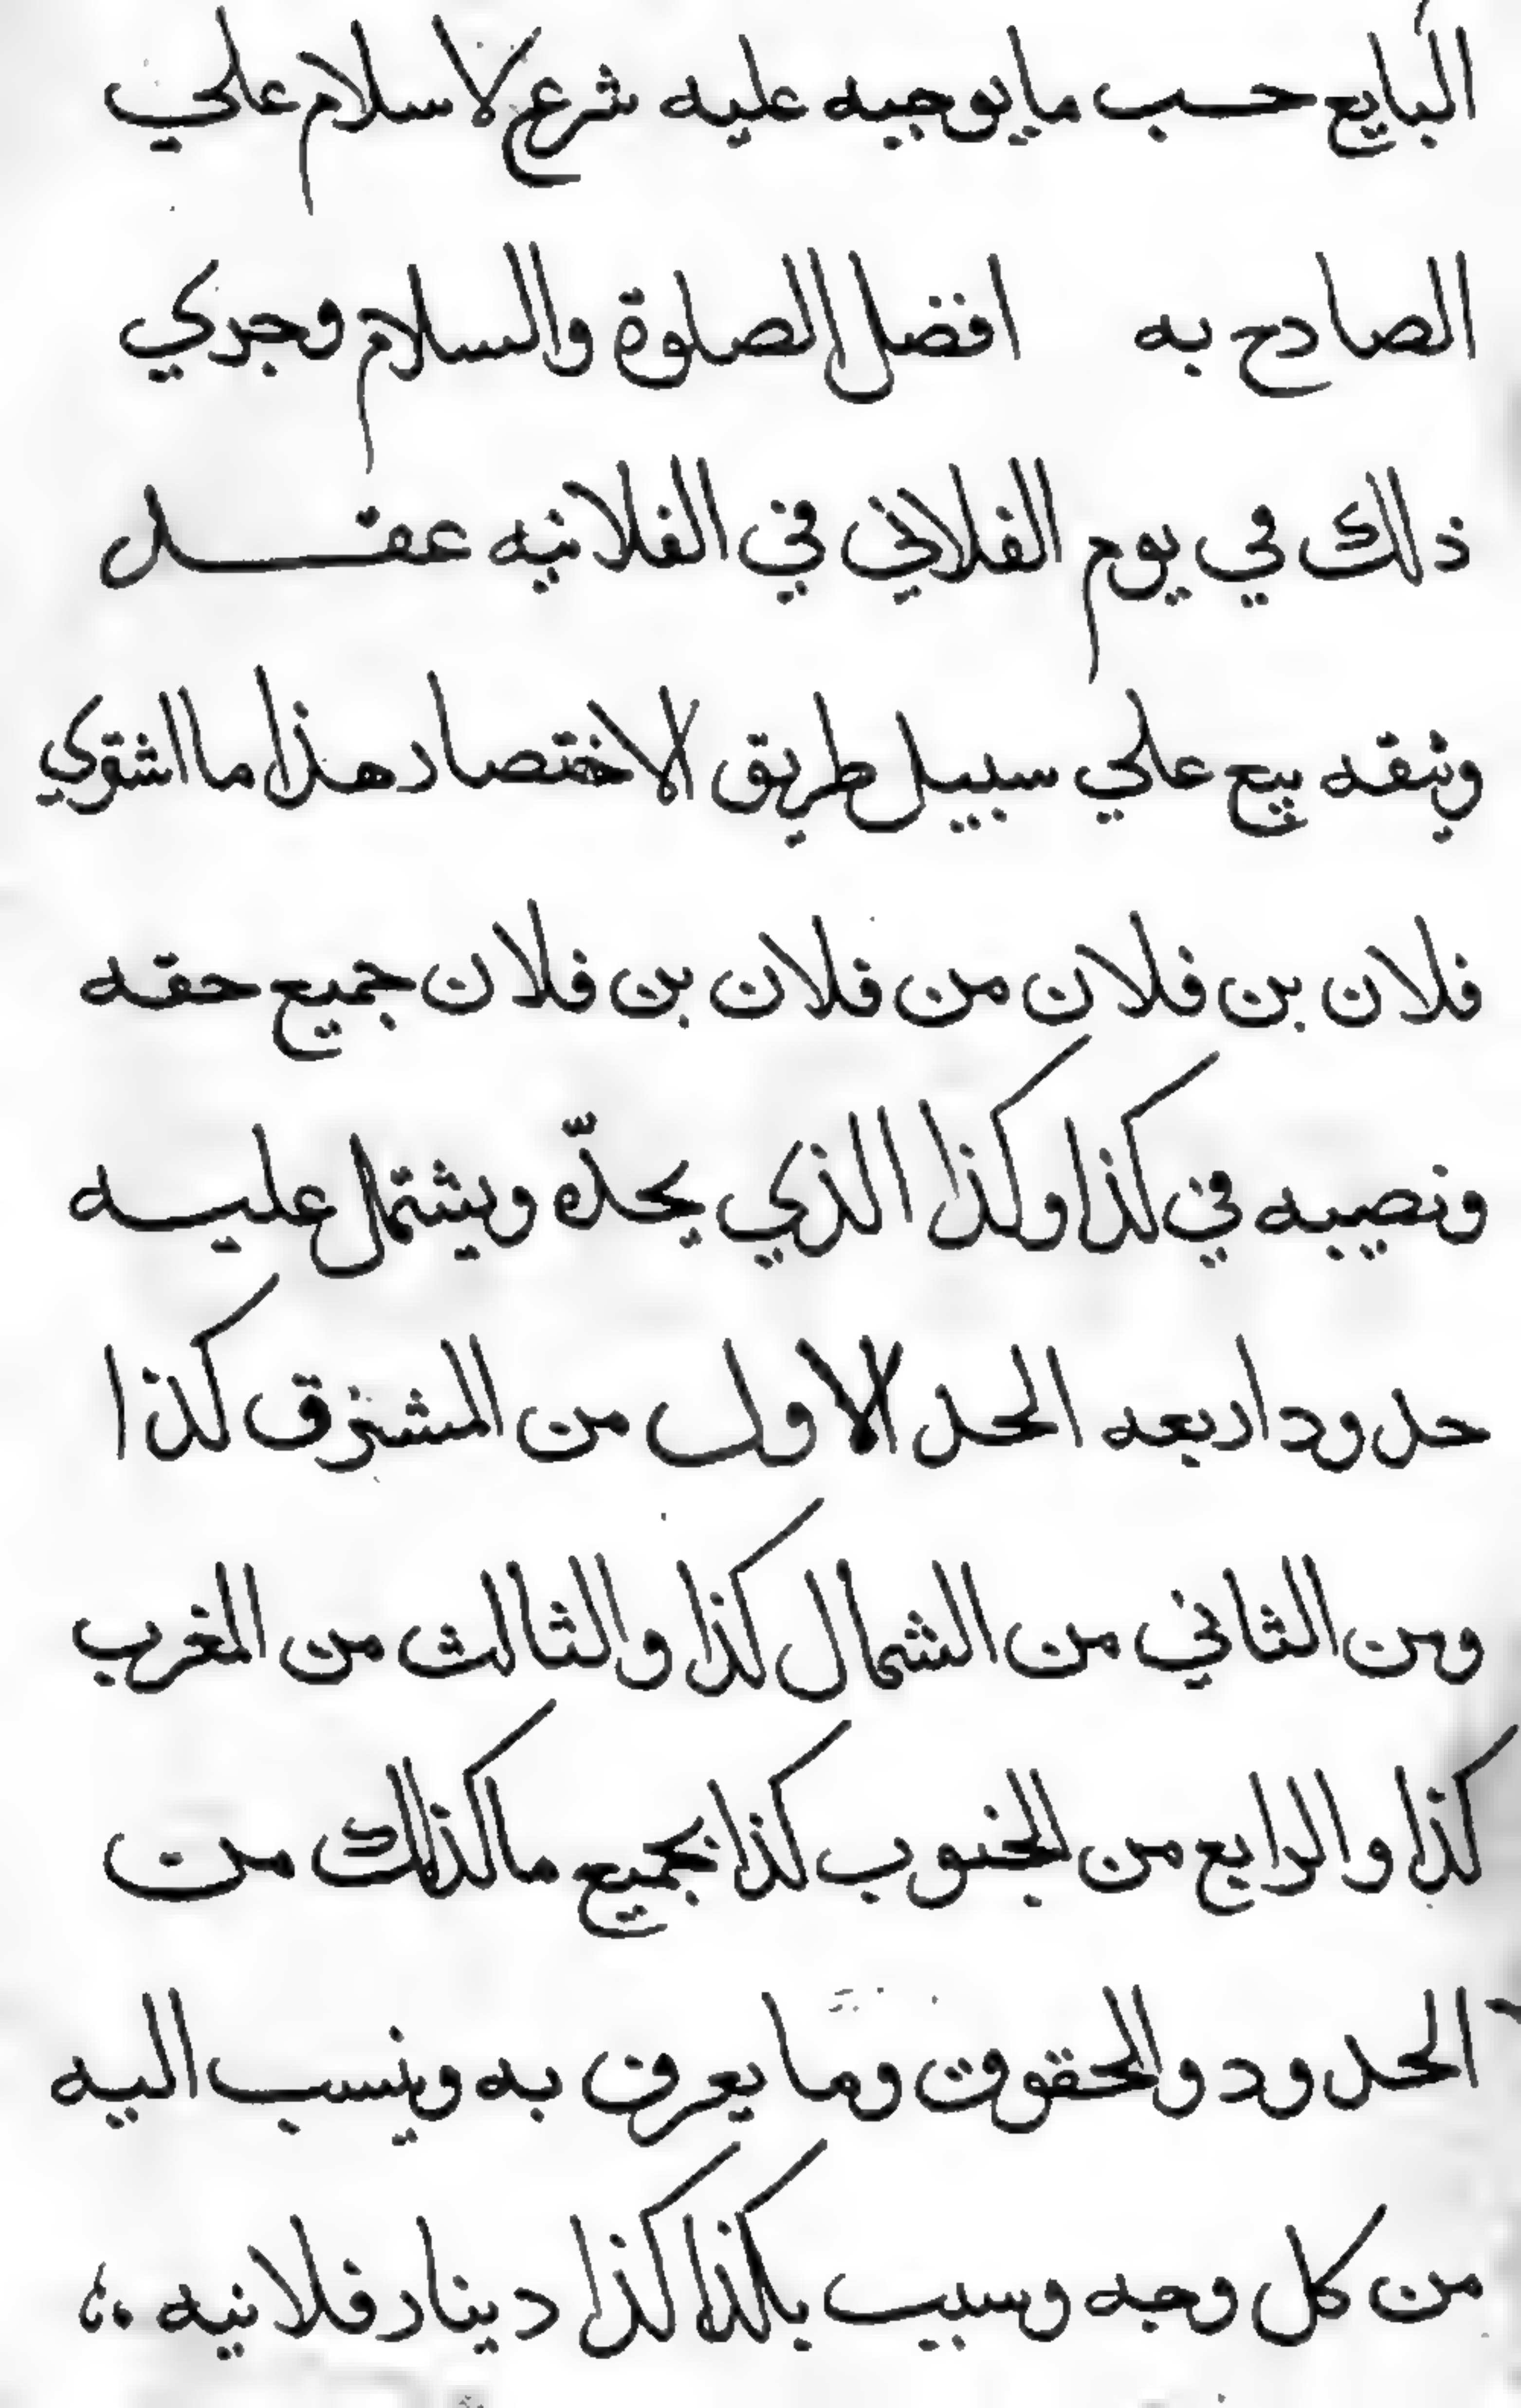 البايع حسب مايوجبه عليه شرع لاسلام علي
الصادح به افضل الصلوة والسلام وجري
ذلك في يوم الفلاني في الفلانيه عقد
وثيقه بيع علي سبيل طريق الاختصار هذا ما اشتري
فلان بن فلان من فلان بن فلان جميع حقه
ونصيبه في كذا وكذا الذي يحدّه ويشتمل عليه
حدود اربعه الحد الاول من المشرق كذا
ومن الثاني من الشمال كذا والثالث من المغرب
كذا والرابع من الجنوب كذا بجميع مالذلك من
الحدود والحقوق وما يعرف به وينسب اليه
من كل وجه وسبب بكذا كذا دينار فلانيه